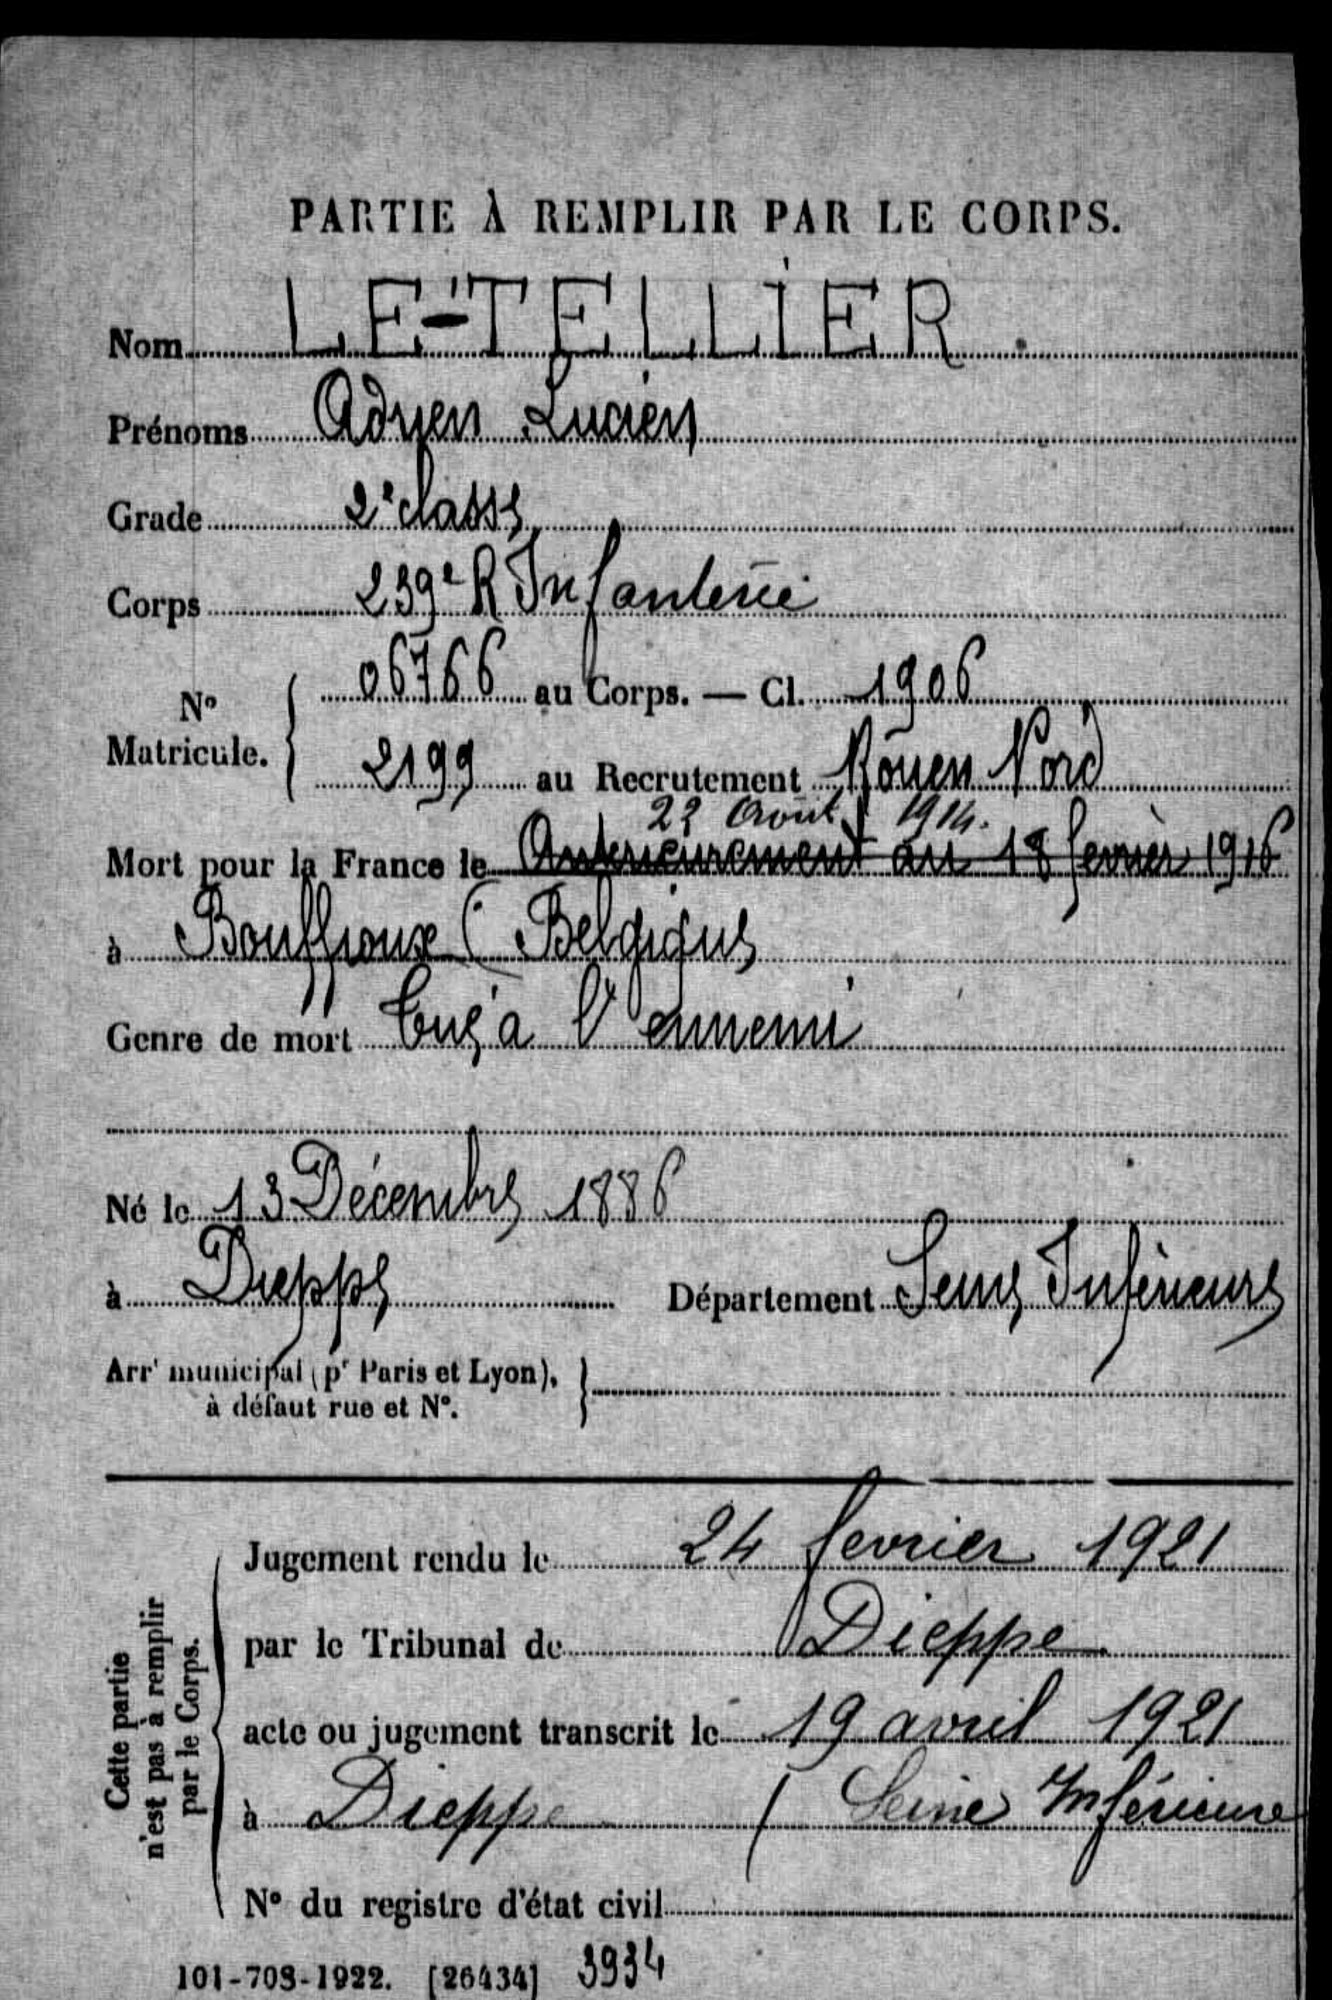 PARTIE À REMPLIR PAR LE CORPS.
Nom LE-TELLIER.
Prénoms Adrien Lucien
Grade 2e classe
Corps 239e R Infanterie
No
Matricule.
06766 au Corps. — Cl. 1906
2199 au Recrutement Rouen Nord
22 Août 1914.
Mort pour la France le Antérieurement au 18 février 1916
à Bouffioux (Belgique
Genre de mort Tué à l'ennemi
Né le 13 Décembre 1886
à Dieppe Département Seine Inférieure
Arrt municipal (pr Paris et Lyon),
à défaut rue et N°.
Cette partie
n'est pas à remplir
par le Corps.
Jugement rendu le 24 fevrier 1921
par le Tribunal de Dieppe
acte ou jugement transcrit le 19 avril 1921
à Dieppe (Seine Inférieure
N° du registre d'état civil
101-708-1922. [26434] 3934